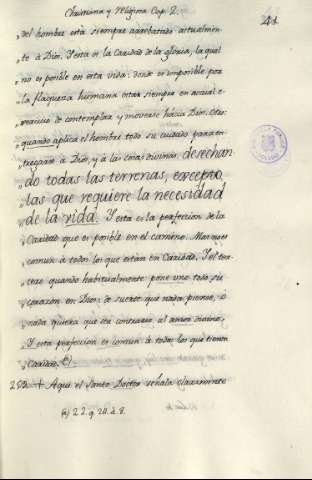 Christiana y religiosa Cap. 2.
41
„ del hombre está siempre arrebatado actualmen-
„ te à Dios. Y esta es la Caridad de la gloria, la qual
„ no es posible en esta vida: donde es imposible por
„ la flaqueza humana estar siempre en actual e-
„ xercicio de contemplar y moverse hácia Dios. Otro:
„ quando aplica el hombre todo su cuidado para en-
„ tregarse à Dios, y à las cosas divinas, desechan-
„ do todas las terrenas, excepto
„ las que requiere la necesidad
„ de la vida. Y esta es la perfeccion de la
„ Caridad que es posible en el camino. Mas no es
„ comun à todos los que estàn en Caridad. Y el ter-
„ cero quando habitualmente pone uno todo su
„ corazon en Dios: de suerte que nada piense, ò
„ nada quiera que sea contrario al amor divino.
„ Y esta perfeccion es comun à todos los que tienen
„ Caridad. (a)
+ Aqui el Santo Doctor señala claramente
(a) 2. 2. q. 24. a. 8.